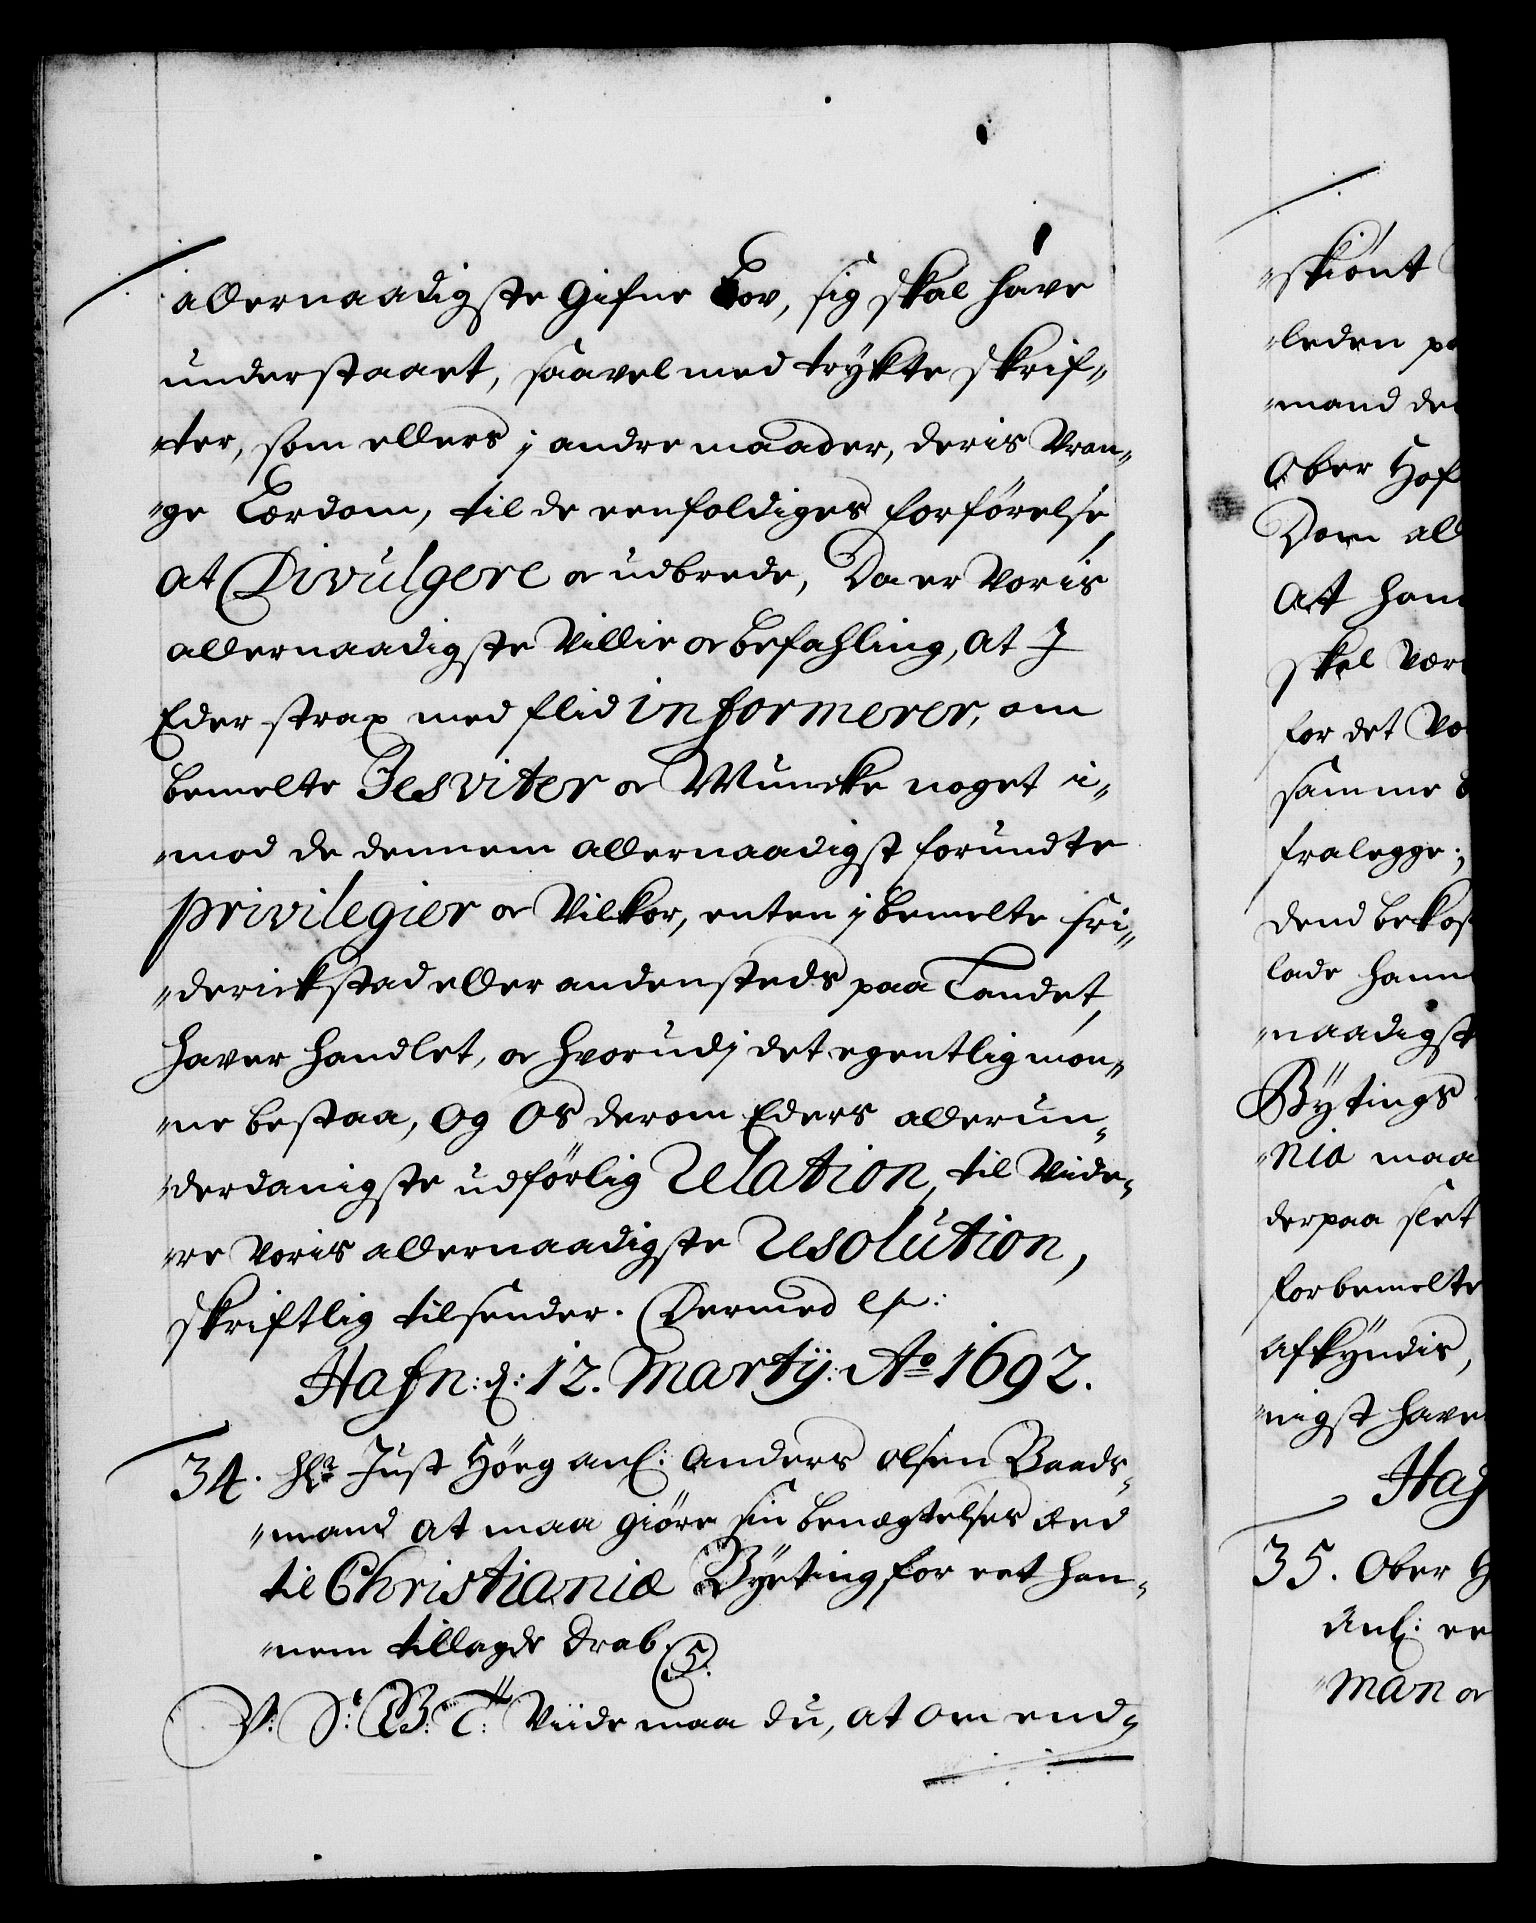 allernaadigste Gifne Lov, sig skal have
understaaet, saavel med trykte skrif„
„ter, som ellers j andre maader, deris Vran„
„ge Lerdom, til de eenfoldiges forförelse,
at Divulgere oc udbrede, Da er Voris
allernaadigste Villie oc befahling, at I
Eder strax med flid informerer, om
bemelte Jesviter oc Muncke noget i„
„mod de dennem allernaadigst forundte
privilegier oc Vilkor, enten j bemelte Fri„
„derickstad eller andensteds paa Landet,
haver handlet, oc hvorudj det egentlig mon„
„ne bestaa, Og Os derom Eders allerun„
„derdanigste udförlig Relation, til Vide„
„re Voris allernaadigste Resolution,
skriftlig tilsender. Dermed
Hafn: d: 12. Martij: Ao 1692.
34. Hr Just Höeg anl: Anders Olsen Baads„
„mand at maa giöre sin benegtelses Eed
til Christiania Byeting for eet han„
„nem tillagde Drab.
V: S: G: B: T: Viide maa du, at om end„
„skiönt
„leden
„mand
Ober Hof
Dom all
Att
skal
for det
samme
fralegge;
Dend
lade
„naadigst
Bytings
„nia maa
derpaa
forbemelte
afkyndis,
„nigst have
Haf
35. Ober
Anl: ee
„man oc